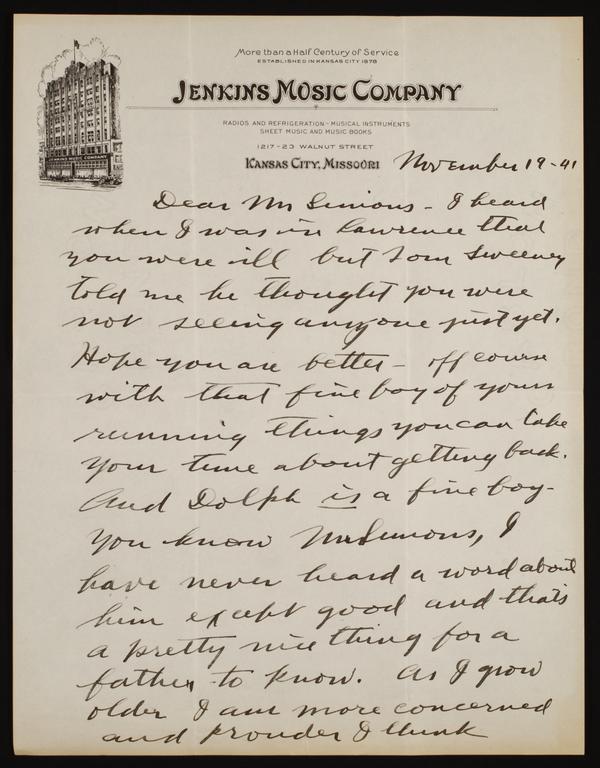 More than a Half Century of Service
ESTABLISHED IN KANSAS CITY 1878
JENKINS MUSIC COMPANY
RADIOS AND REFRIGERATION - MUSICAL INSTRUMENTS
SHEET MUSIC AND MUSIC BOOKS
1217-23 WALNUT STREET
KANSAS CITY, MISSOURI
JENKINS MUSIC COMPANY
November 19-41
Dear Mr Simons - I heard
when I was in Lawrence that
you were ill but Tom Sweeney
told me he thought you were
not seeing anyone just yet.
Hope you are better - off course
with that fine boy of yours
running things you can take
your time about getting back.
And Dolph is a fine boy -
you know Mr Simons, I
have never heard a word about
him except good and that's
a pretty nice thing for a
father to know. As I grow
older I am more concerned
and prouder I think